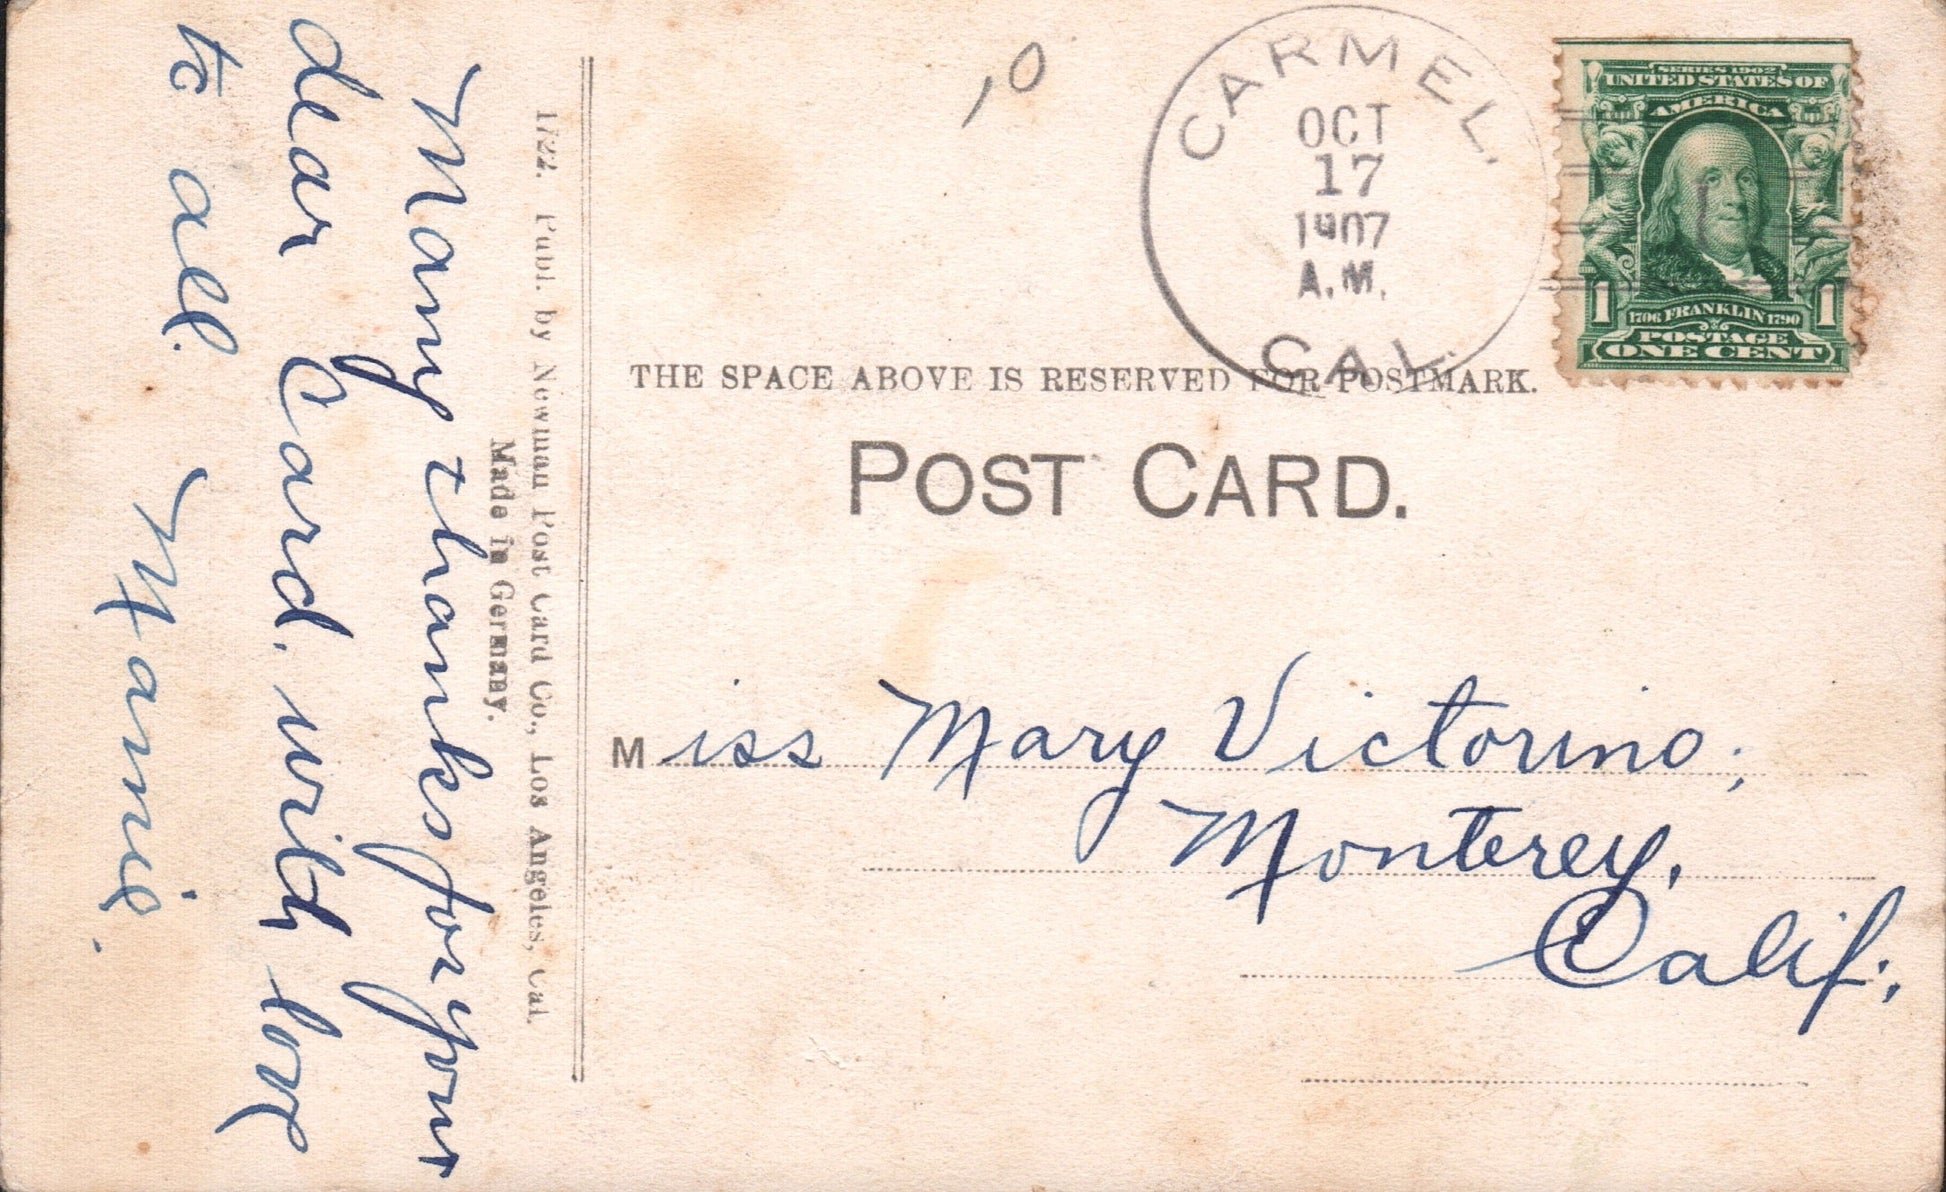 Many thanks for your
dear Card, with love
to all.
Mamie.
1722. Publ. by Newman Post Card Co., Los Angeles, Cal.
Made in Germany.
,10
CARMEL.
OCT
17
1907
A.M.
CAL.
SERIES 1902
UNITED STATES OF
AMERICA
1 1706 FRANKLIN 1790 1
POSTAGE
ONE CENT
THE SPACE ABOVE IS RESERVED FOR POSTMARK.
POST CARD.
Miss Mary Victorino,
Monterey,
Calif.,